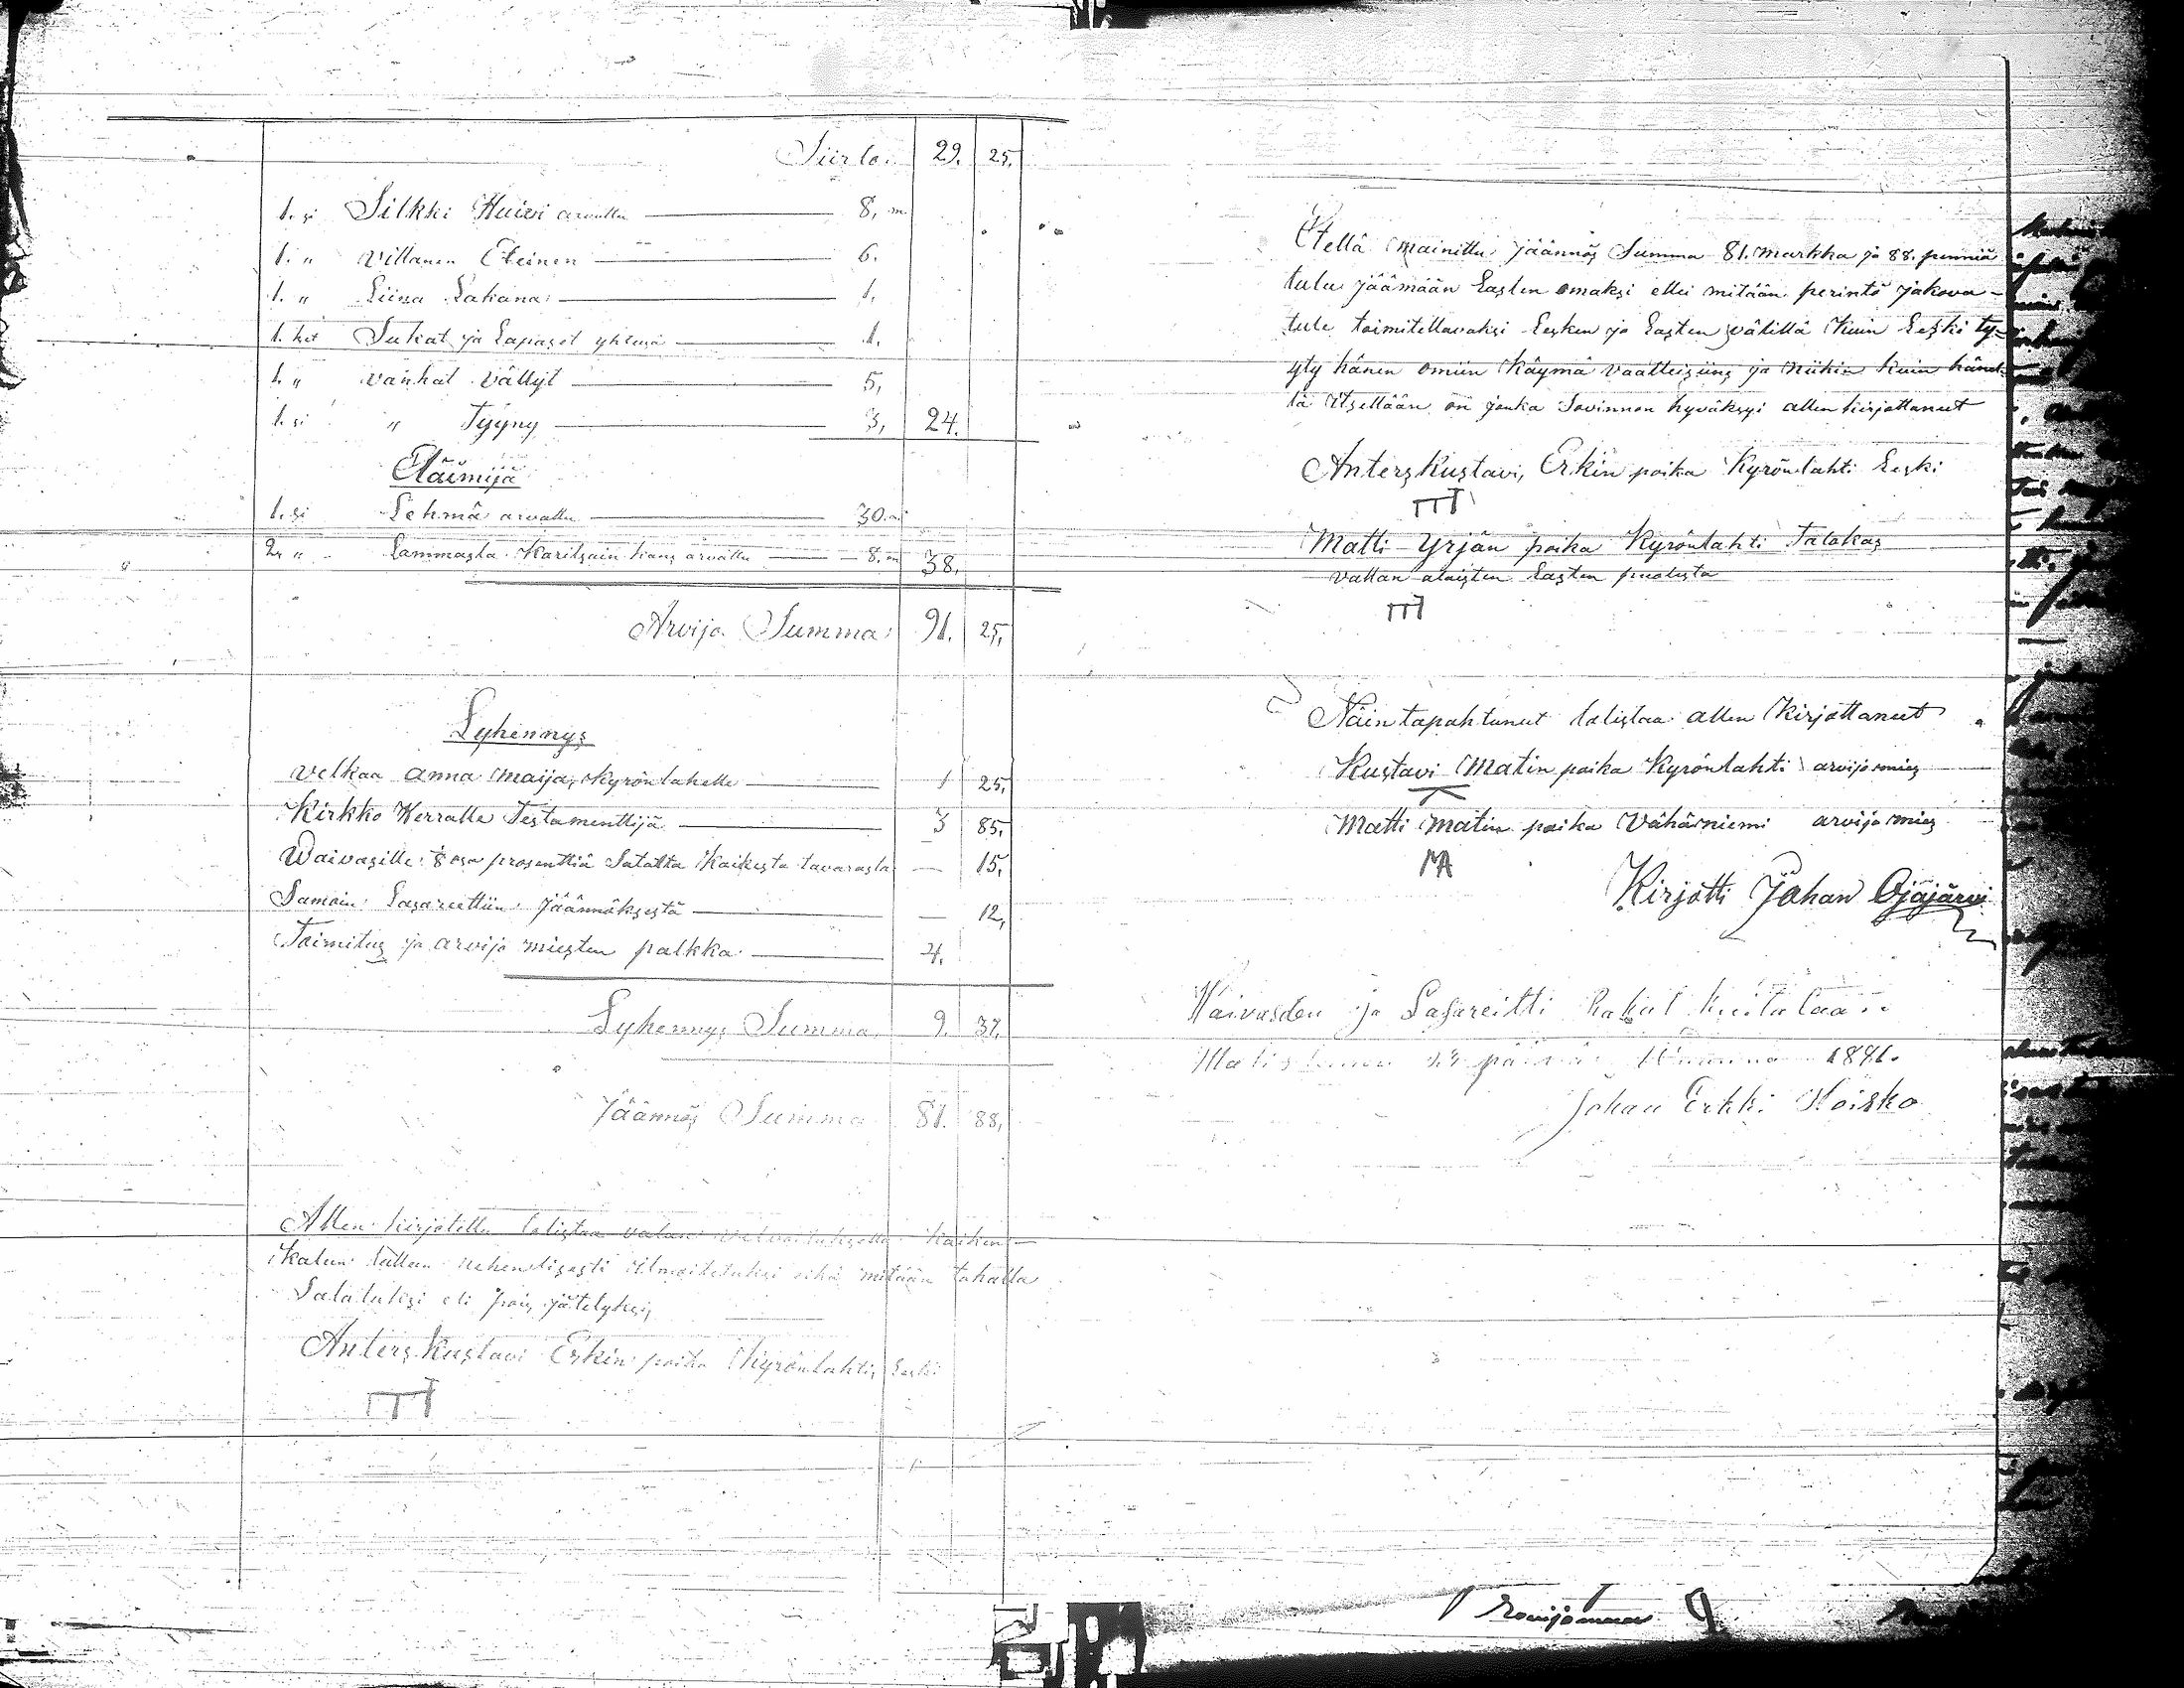 Siirto: 29. 25.
1. si Silkki Huivi arvattu 8, m.
1. " villanen Eteinen 6.
1. " Liina Lakana 1.
1. ket Sukat ja Lapaset yhteisä 1.
1. " vanhat vällyt 5,
1. si " Tyyny 3, 24.
Eläimijä
1. si Lehmä arvattu 30. m
2. " Lammasta Karitsain kans arvattu 8. m 38.
Arvijo Summa 91. 25.
Lyhennys
Velkaa anna maija, Kyrönlahelle 1 25,
Kirkko Herralle Testamenttijä 3 85,
Waivasille 1/8 osa prosenttia Satalta Kaikesta tavarasta — 15,
Samoin Lasareettiin Jäännöksestä — 12,
Toimitus ja arvijo miesten palkka 4.
Lyhennys Summa 9. 37.
Jäännös Summa 81. 88,
Allen kirjotettu totistaa valan velvoituksella kaiken
kalun tulleen ilmoitetuksi eikä mitään tahalla
Salatuksi eli pois jätetyksi,
Anters Kustavi Erkin poika Kyrönlahti, Leski
Etellä mainittu jäännös Summa 81. markka ja 88. penniä
tulee jäämään Lasten omaksi ellei mitään perintö jakova-
tule toimitettavaksi Lesken ja Lasten välillä Kuin Leski ty-
yty hänen omiin käymä vaatteisiins ja niihin kuin hänel-
lä itsellään on jonka Sovinnon hyväksyi allen kirjottanut
Anters Kustavi, Erkin poika Kyrönlahti Leski
Matti Yrjän poika Kyrönlahti Talokas
vallan alaisten Lasten puolesta
Näin tapahtunut totistaa allen Kirjottanut
Kustavi Matin poika Kyrönlahti arvijo mies
Matti Matin poika Vähäniemi arvijo mies
MA
Kirjotti Johan Ojajärvi
Waivasten ja Lasareitti Rahat kuitataa..
päivä 1891.
Johan Erkki Koisko